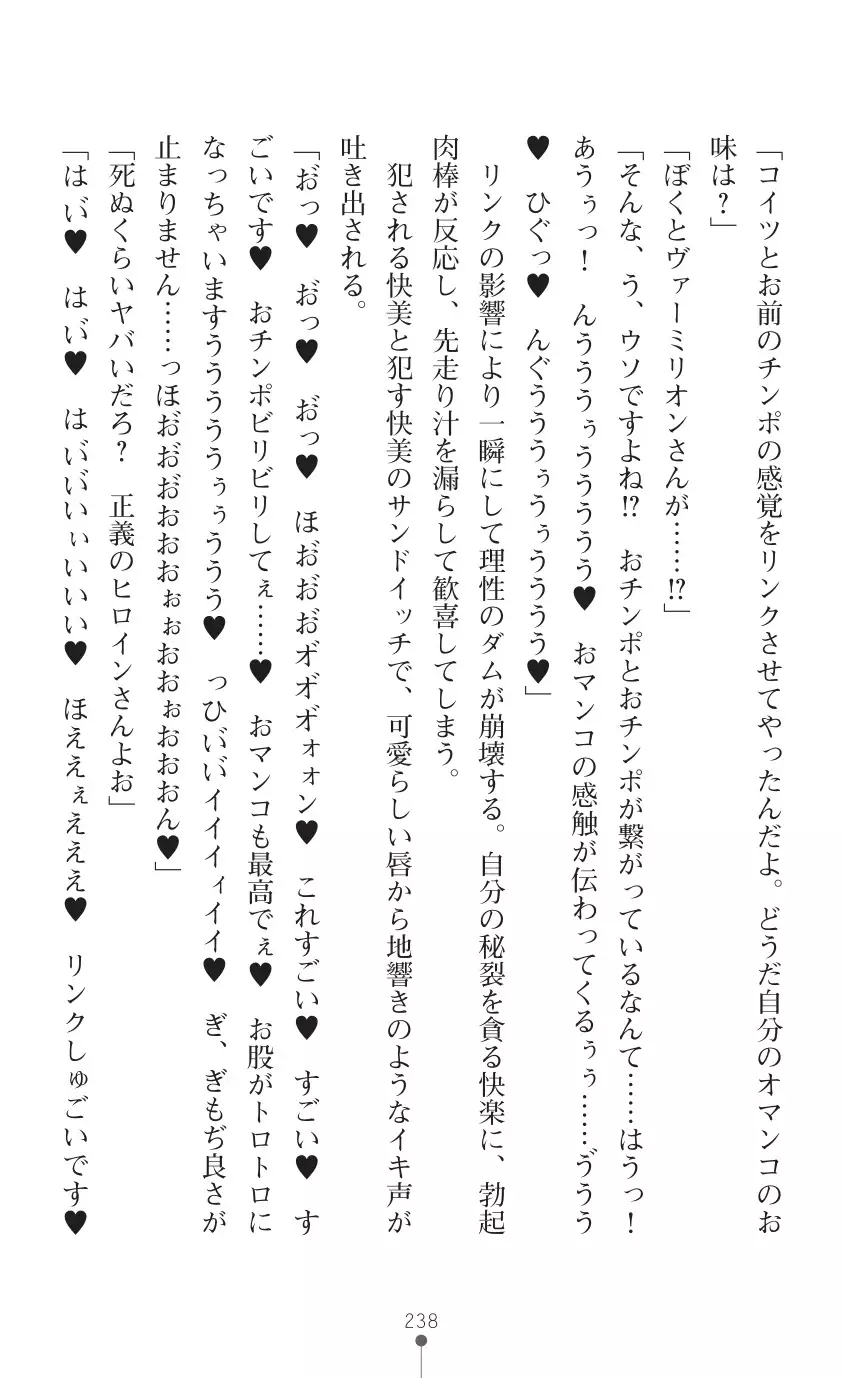 「コイツとお前のチンポの感覚をリンクさせてやったんだよ。どうだ自分のオマンコのお
味は？」
「ぼくとヴァーミリオンさんが……!?」
「そんな、う、ウソですよね!?　おチンポとおチンポが繋がっているなんて……はうっ！
あうぅっ！　んうううぅううううう♥　おマンコの感触が伝わってくるぅぅ……ゔうう
♥　ひぐっ♥　んぐうううぅうぅうううう♥」
　リンクの影響により一瞬にして理性のダムが崩壊する。自分の秘裂を貪る快楽に、勃起
肉棒が反応し、先走り汁を漏らして歓喜してしまう。
　犯される快美と犯す快美のサンドイッチで、可愛らしい唇から地響きのようなイキ声が
吐き出される。
「お゙っ♥　お゙っ♥　お゙っ♥　ほお゙お゙お゙オ゙オ゙オ゙ォォン♥　これすごい♥　すごい♥　す
ごいです♥　おチンポビリビリしてぇ……♥　おマンコも最高でぇ♥　お股がトロトロに
なっちゃいますうううううぅぅううう♥　っひい゙い゙イイイィイイ♥　ぎ、ぎもぢ良さが
止まりません……っほお゙お゙お゙おおおぉぉおおぉおおおん♥」
「死ぬくらいヤバいだろ？　正義のヒロインさんよお」
「はい゙♥　はい゙♥　はい゙い゙いぃいいいい♥　ほええぇえええ♥　リンクしゅごいです♥
238